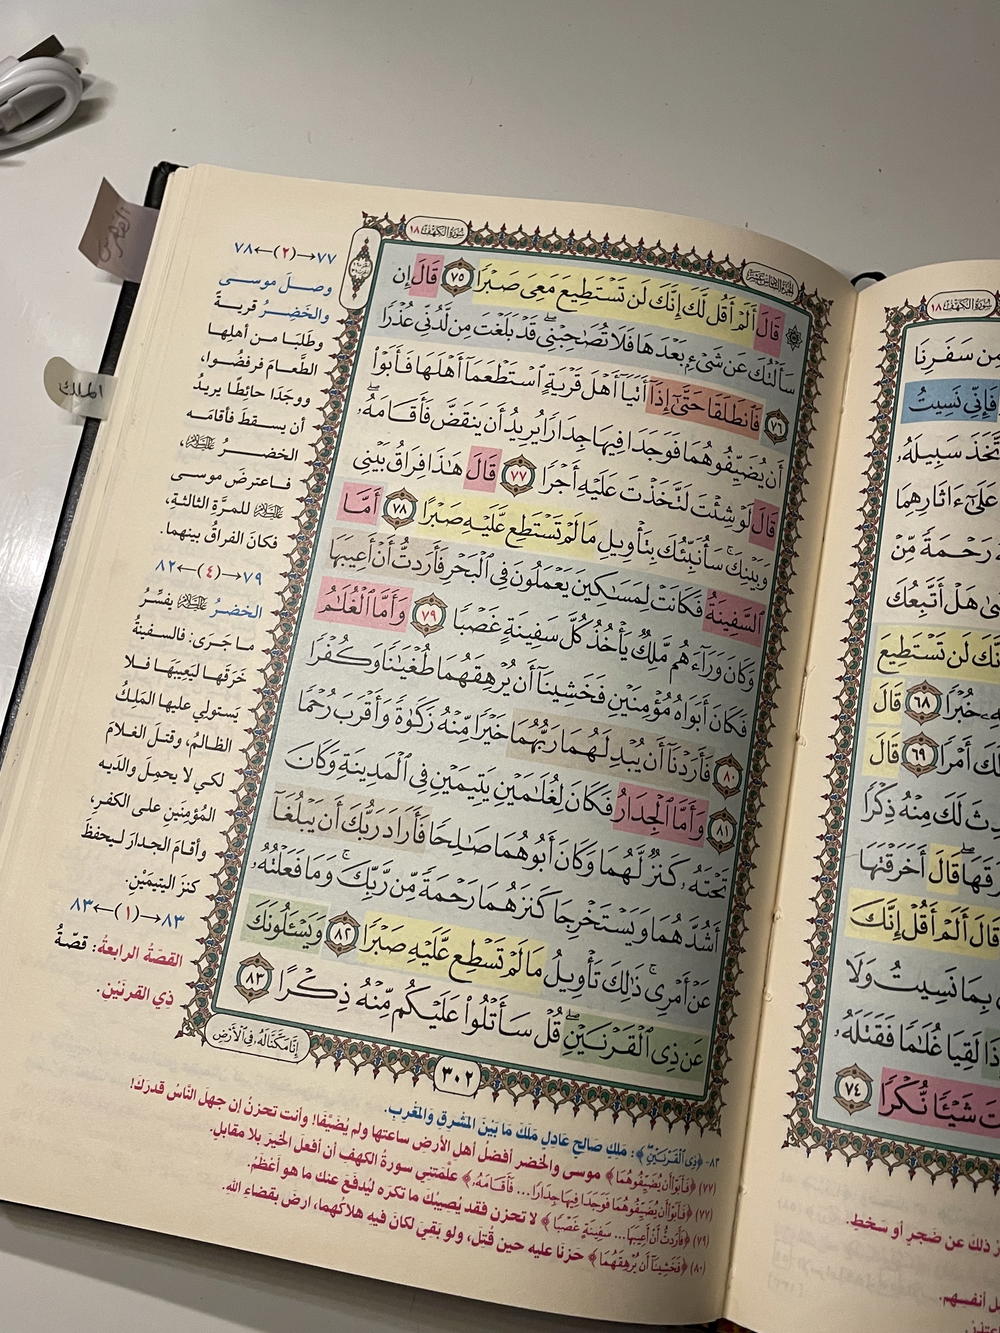 الفهرس
الملك
سُورَةُ الكَهۡفِ ١٨
الجُزْءُ السَّادِسَ عَشَرَ
۞ قَالَ أَلَمۡ أَقُل لَّكَ إِنَّكَ لَن تَسۡتَطِيعَ مَعِيَ صَبۡرٗا ٧٥ قَالَ إِن
سَأَلۡتُكَ عَن شَيۡءِۭ بَعۡدَهَا فَلَا تُصَٰحِبۡنِيۖ قَدۡ بَلَغۡتَ مِن لَّدُنِّي عُذۡرٗا
٧٦ فَٱنطَلَقَا حَتَّىٰٓ إِذَآ أَتَيَآ أَهۡلَ قَرۡيَةٍ ٱسۡتَطۡعَمَآ أَهۡلَهَا فَأَبَوۡاْ
أَن يُضَيِّفُوهُمَا فَوَجَدَا فِيهَا جِدَارٗا يُرِيدُ أَن يَنقَضَّ فَأَقَامَهُۥۖ
قَالَ لَوۡ شِئۡتَ لَتَّخَذۡتَ عَلَيۡهِ أَجۡرٗا ٧٧ قَالَ هَٰذَا فِرَاقُ بَيۡنِي
وَبَيۡنِكَۚ سَأُنَبِّئُكَ بِتَأۡوِيلِ مَا لَمۡ تَسۡتَطِع عَّلَيۡهِ صَبۡرًا ٧٨ أَمَّا
ٱلسَّفِينَةُ فَكَانَتۡ لِمَسَٰكِينَ يَعۡمَلُونَ فِي ٱلۡبَحۡرِ فَأَرَدتُّ أَنۡ أَعِيبَهَا
وَكَانَ وَرَآءَهُم مَّلِكٞ يَأۡخُذُ كُلَّ سَفِينَةٍ غَصۡبٗا ٧٩ وَأَمَّا ٱلۡغُلَٰمُ
فَكَانَ أَبَوَاهُ مُؤۡمِنَيۡنِ فَخَشِينَآ أَن يُرۡهِقَهُمَا طُغۡيَٰنٗا وَكُفۡرٗا
٨٠ فَأَرَدۡنَآ أَن يُبۡدِلَهُمَا رَبُّهُمَا خَيۡرٗا مِّنۡهُ زَكَوٰةٗ وَأَقۡرَبَ رُحۡمٗا
٨١ وَأَمَّا ٱلۡجِدَارُ فَكَانَ لِغُلَٰمَيۡنِ يَتِيمَيۡنِ فِي ٱلۡمَدِينَةِ وَكَانَ
تَحۡتَهُۥ كَنزٞ لَّهُمَا وَكَانَ أَبُوهُمَا صَٰلِحٗا فَأَرَادَ رَبُّكَ أَن يَبۡلُغَآ
أَشُدَّهُمَا وَيَسۡتَخۡرِجَا كَنزَهُمَا رَحۡمَةٗ مِّن رَّبِّكَۚ وَمَا فَعَلۡتُهُۥ
عَنۡ أَمۡرِيۚ ذَٰلِكَ تَأۡوِيلُ مَا لَمۡ تَسۡطِع عَّلَيۡهِ صَبۡرٗا ٨٢ وَيَسۡـَٔلُونَكَ
عَن ذِي ٱلۡقَرۡنَيۡنِۖ قُلۡ سَأَتۡلُواْ عَلَيۡكُم مِّنۡهُ ذِكۡرًا ٨٣
إِنَّا مَكَّنَّا لَهُۥ فِي ٱلۡأَرۡضِ
٣٠٢
٧٧→(٢)←٧٨
وصلَ موسى
والخَضِرُ قريةً
وطلَبَا من أهلِها
الطَّعامَ فرفضُوا،
ووجَدَا حائِطًا يريدُ
أن يسقطَ فأقامَه
الخضرُ عليه السلام،
فاعترضَ موسى
عليه السلام للمرَّةِ الثالثةِ،
فكانَ الفراقُ بينهما.
٧٩→(٤)←٨٢
الخضرُ عليه السلام يفسِّرُ
ما جَرَى: فالسفينةُ
خَرَقَها ليَعِيبَهَا فلا
يَستولي عليها المَلِكُ
الظالمُ، وقتلَ الغلامَ
لكي لا يحمِلَ والدَيه
المُؤمنَينِ على الكفرِ،
وأقامَ الجدارَ ليحفظَ
كنزَ اليتيمَيْنِ.
٨٣→(١)←٨٣
القصَّةُ الرابعةُ: قصَّةُ
ذِي القرنَيْنِ.
٨٣- ﴿ذِي ٱلۡقَرۡنَيۡنِ﴾: مَلِكٍ صَالِحٍ عَادِلٍ مَلَكَ مَا بَيْنَ المَشْرِقِ وَالمَغْرِبِ.
(٧٧) ﴿فَأَبَوۡاْ أَن يُضَيِّفُوهُمَا﴾ موسى والخضر أفضل أهلِ الأرضِ ساعتها ولم يُضَيَّفا! وأنت تحزنُ إن جهلَ النَّاسُ قدرَك!
(٧٧) ﴿فَأَبَوۡاْ أَن يُضَيِّفُوهُمَا فَوَجَدَا فِيهَا جِدَارٗا... فَأَقَامَهُۥ﴾ علَّمَتنِي سورةُ الكهفِ أن أفعلَ الخيرَ بلا مقابلٍ.
(٧٩) ﴿فَأَرَدتُّ أَنۡ أَعِيبَهَا... سَفِينَةٍ غَصۡبٗا﴾ لا تحزن فقد يُصيبُك ما تكرَه ليُدفعَ عنك ما هو أعظمُ.
(٨٠) ﴿فَخَشِينَآ أَن يُرۡهِقَهُمَا﴾ حزنَا عليه حين قُتِل، ولو بقيَ لكانَ فيه هلاكُهما، ارضَ بقضاءِ اللهِ.
سُورَةُ الكَهۡفِ ١٨
مِن سَفَرِنَا
فَإِنِّي نَسِيتُ
تَّخَذَ سَبِيلَهُۥ
عَلَىٰٓ ءَاثَارِهِمَا
رَحۡمَةٗ مِّنۡ
هَلۡ أَتَّبِعُكَ
لَن تَسۡتَطِيعَ
خُبۡرٗا ٦٨ قَالَ
لَكَ أَمۡرٗا ٦٩ قَالَ
لَكَ مِنۡهُ ذِكۡرٗا
قَالَ أَخَرَقۡتَهَا
قَالَ أَلَمۡ أَقُلۡ إِنَّكَ
بِمَا نَسِيتُ وَلَا
لَقِيَا غُلَٰمٗا فَقَتَلَهُۥ
شَيۡـٔٗا نُّكۡرٗا ٧٤
ذلكَ عن ضَجرٍ أو سَخَطٍ.
أنفسِهم.